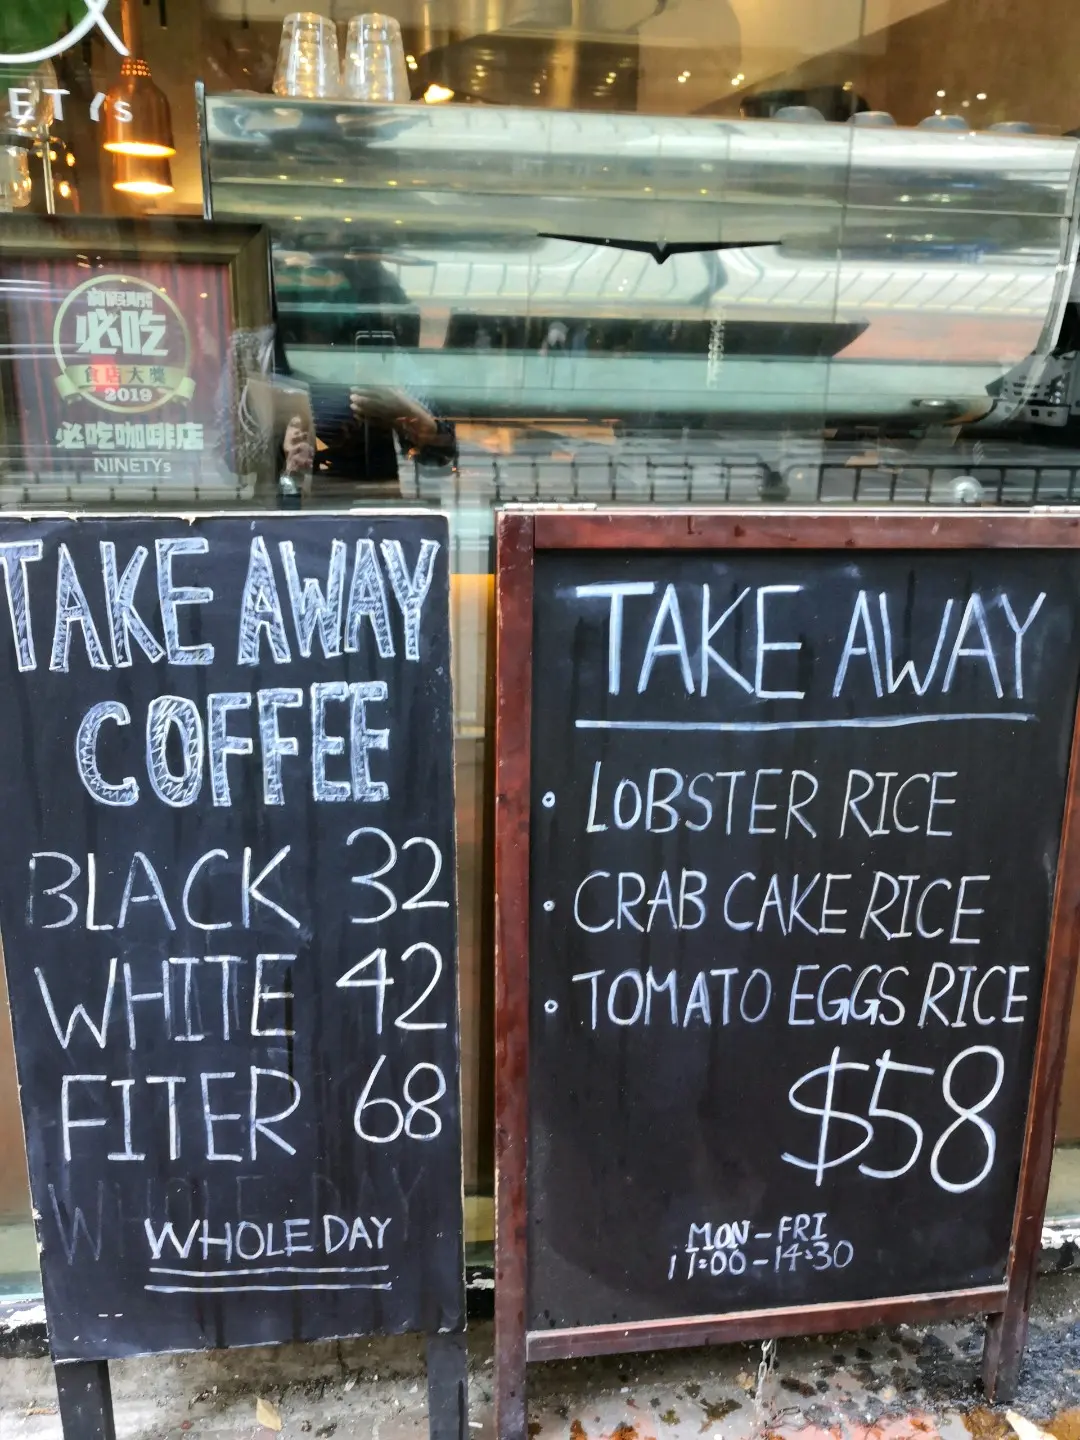 ETYs
必吃
食店大獎
2019
必吃咖啡店
NINETYs
TAKE AWAY
COFFEE
BLACK 32
WHITE 42
FITER 68
WHOLE DAY
WHOLE DAY
TAKE AWAY
• LOBSTER RICE
• CRAB CAKE RICE
• TOMATO EGGS RICE
$58
MON-FRI
11:00-14:30